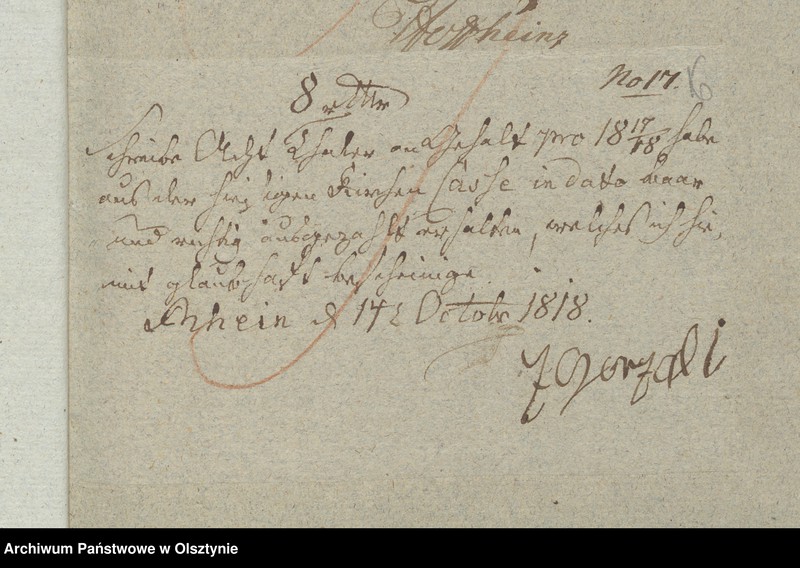 No 17. 6
8 rthlr
Schreibe Acht Thaler an Gehalt pro 18 17/18 habe
aus der hiesigen Kirchen Casse in dato baar
und richtig ausgezahlt erhalten, welches ich hie,
mit glaubhaft bescheinige.
Rhein d 14 t Octobr 1818.
Archiwum Państwowe w Olsztynie